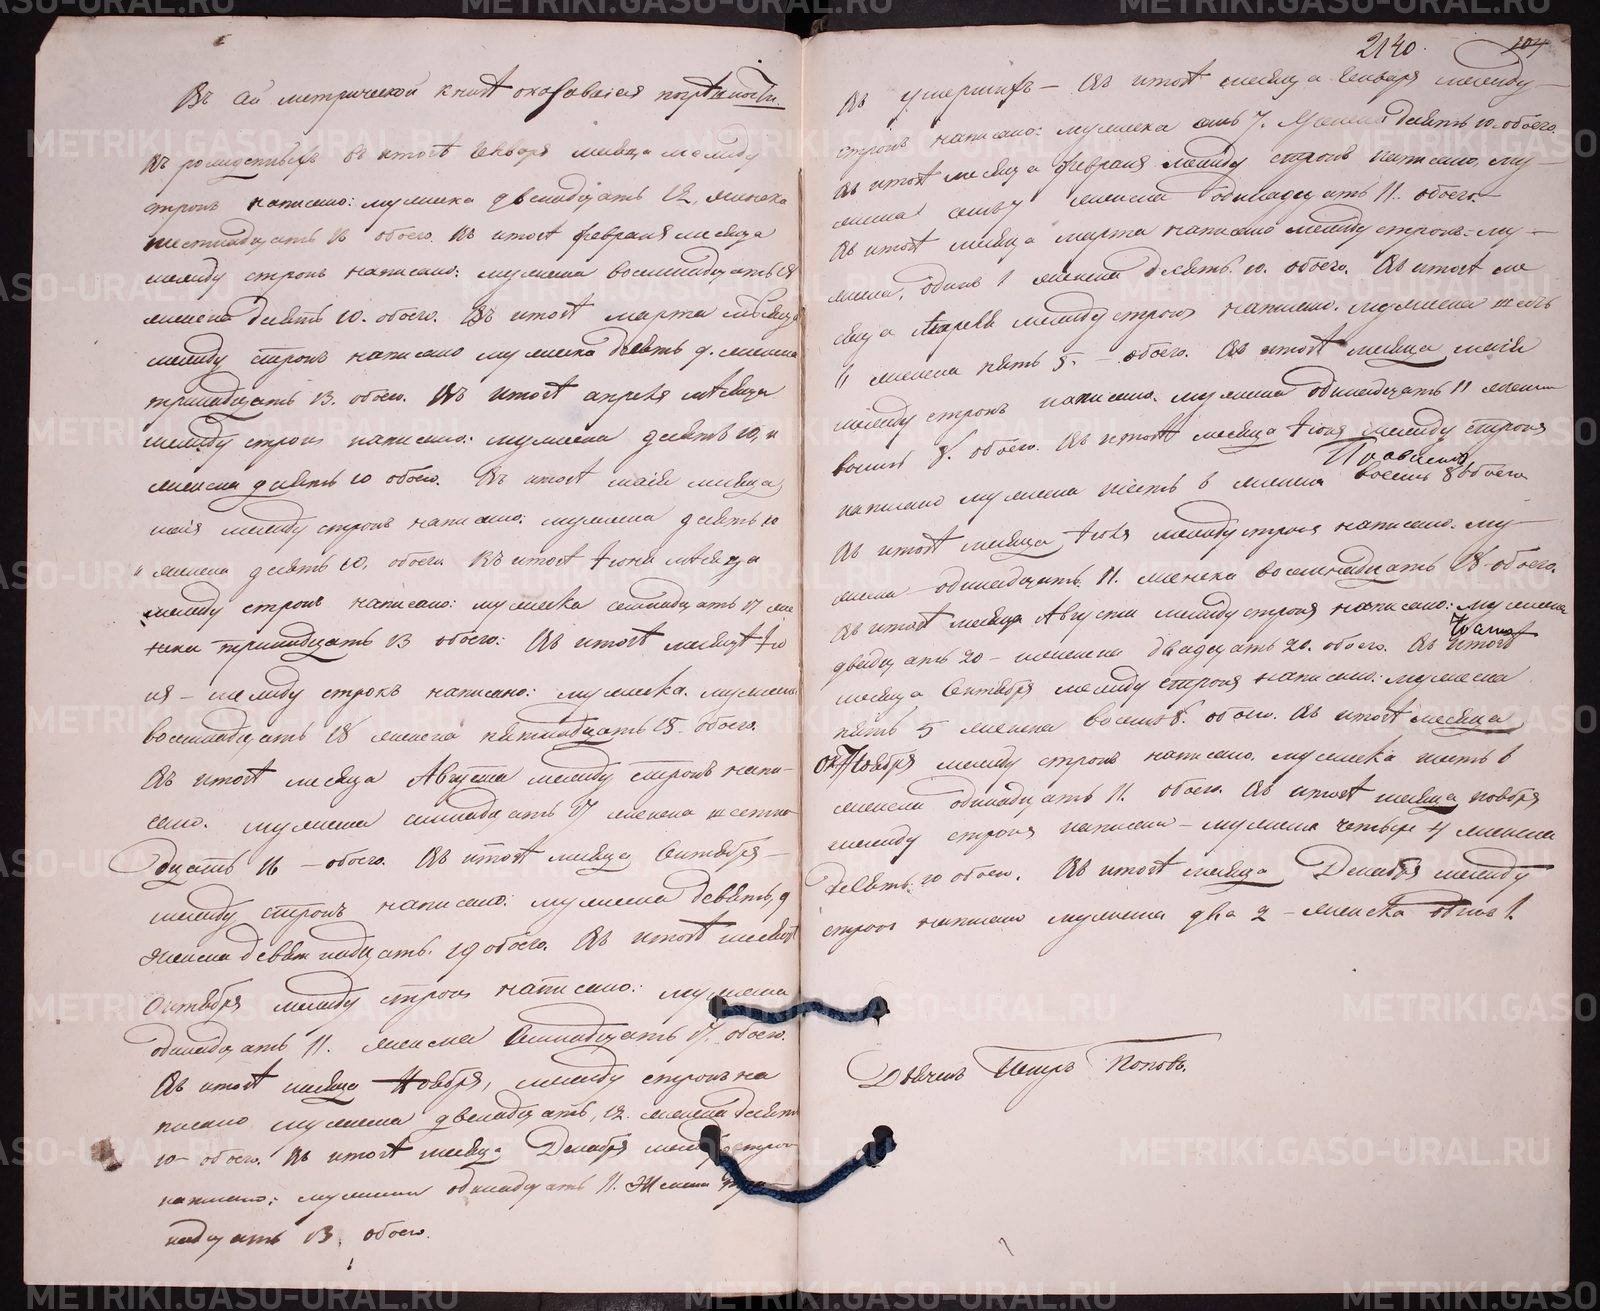 Въ сей метрической книгѣ оказывается погрѣшности.
въ родившихъ въ итогѣ Января месяца между
строкъ написано: мужеска двенадцать 12, женска
шестнадцать 16 обоего. Въ итогѣ февраля месяца
между строкъ написано: мужеска восемнадцать 18
женска десять 10. обоего. Въ итогѣ марта месяца
между строкъ написано мужеска девять 9. женска
тринадцать 13. обоего. Въ итогѣ апреля месяца
между строкъ написано: мужеска десять 10, и
женска десять 10 обоего. Въ итогѣ маия месяца
маия между строкъ написано: мужеска десять 10
женска десять 10, обоего Въ итогѣ Іюня месяца
между строкъ написано: мужеска семнадцать 17 же
нска тринадцать 13 обоего: Въ итогѣ месяца Ію
ля – между строкъ написано: мужеска. мужеска
восемнадцать 18 женска пятнадцать 15. обоего.
Въ итогѣ месяца Августа между строкъ напи-
сано. мужеска семнадцать 17 женска шестна
дцать 16 – обоего. Въ итогѣ месяца Сентября –
между строкъ написано: мужеска девять, 9
женска девятнадцать. 19 обоего. Въ итогѣ месяца
Октября между строкъ написано: мужеска
одинадцать 11. женска семнадцать 17. обоего.
Въ итогѣ месяца Ноября, между строкъ на
писано мужеска двенадцать, 12. женска десять
10 – обоего. Въ итогѣ месяца Декабря между строкъ
написано: мужеска одинадцать 11. женска три
надцать 13. обоего.
2140. 104
Въ умершихъ – Въ итогѣ месяца Января между
строкъ написано: мужеска семь 7. женска десять 10. обоего.
Въ итогѣ месяца февраля между строкъ написано, му –
жеска семь 7 женска одинадцать 11. обоего. –
Въ итогѣ месяца марта написано между строкъ: му –
жеска, одинъ 1 женска десять. 10. обоего. Въ итогѣ ме
сяца Апреля между строкъ написано. мужеска
женска пять 5. – обоего. Въ итогѣ месяца маия
между строкъ написано. мужеска одинадцать 11 женска
восемь 8. обоего. Въ итогѣ месяца Іюня между строкъ
написано мужеска шесть 6 женска восемь 8 обоего
Въ итогѣ месяца Іюля между строкъ написано. му –
жеска – одинадцать. 11. женска восемнадцать 18 обоего.
Въ итогѣ месяца Августа между строкъ написано: мужеска
двадцать 20 – женска двадцать 20. обоего. Въ итогѣ
месяца Сентября между строкъ написано: мужеска
пять 5 женска восемь 8. обоего. Въ итогѣ месяца
Октоября между строкъ написано. мужеска шесть 6
женска одинадцать 11. обоего. Въ итогѣ месяца ноября
между строкъ написано – мужеска четыре 4 женска
десять. 10 обоего. Въ итогѣ месяца Декабря между
строкъ написано мужеска два 2 – женска одна 1.
Дьячекъ Петръ Поповъ.
METRIKI.GASO-URAL.RU